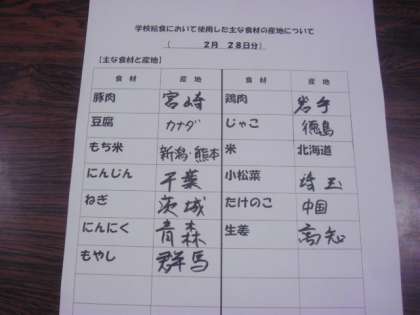 学校給食において使用した主な食材の産地について
( 2月 28日分)
【主な食材と産地】
食材 産地 食材 産地
豚肉 宮崎 鶏肉 岩手
豆腐 カナダ じゃこ 徳島
もち米 新潟・熊本 米 北海道
にんじん 千葉 小松菜 埼玉
ねぎ 茨城 たけのこ 中国
にんにく 青森 生姜 高知
もやし 群馬